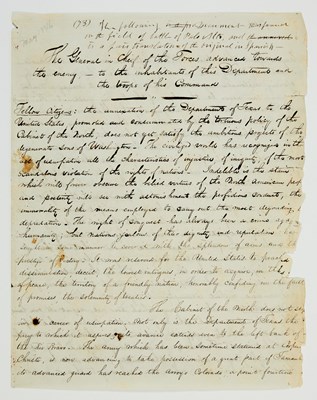 1781 The following
the field of battle of Palo Alto, and
is a free translation of the original in Spanish
The General in Chief of the Forces advanced towards
the enemy – to the inhabitants of this Department and
the troops of his Command
Fellow Citizens: the annexation of the Department of Texas to the
United States, promoted and consummated by the tortuous policy of the
Cabinet of the North, does not yet satisfy the ambitious projects of the
degenerate sons of Washington. The civilized world has recognized in that
act of usurpation all the characteristics of injustice, of iniquity, & of the most
scandalous violation of the rights of nations. Indelible is the stain
which will forever obscure the virtues of the North American people
and posterity will see with the perfidious conduct, the
immorality of the means employed to carry out its most degrading
degradation. The right of conquest has always been a crime against
humanity, but nations jealous of their dignity and reputation have
of arms and the
prestige of victory. It was reserved for the United States to
dissimulation, deceit, the basest intrigues in order to
of peace, the territory of a friendly nation, honorably confiding in the faith
of promises the solemnity of treaties.
The Cabinet of the North does not stop
in its career of usurpation. Not only the Department of Texas
to which it aspires, it covets also the left bank of
the Rio Bravo. The army which has been sometime stationed at Corpus
Christi, is now advancing to take possession of a great part of Tamaulipas
its advanced guard has reached the Arroyo Colorado a point fourteen